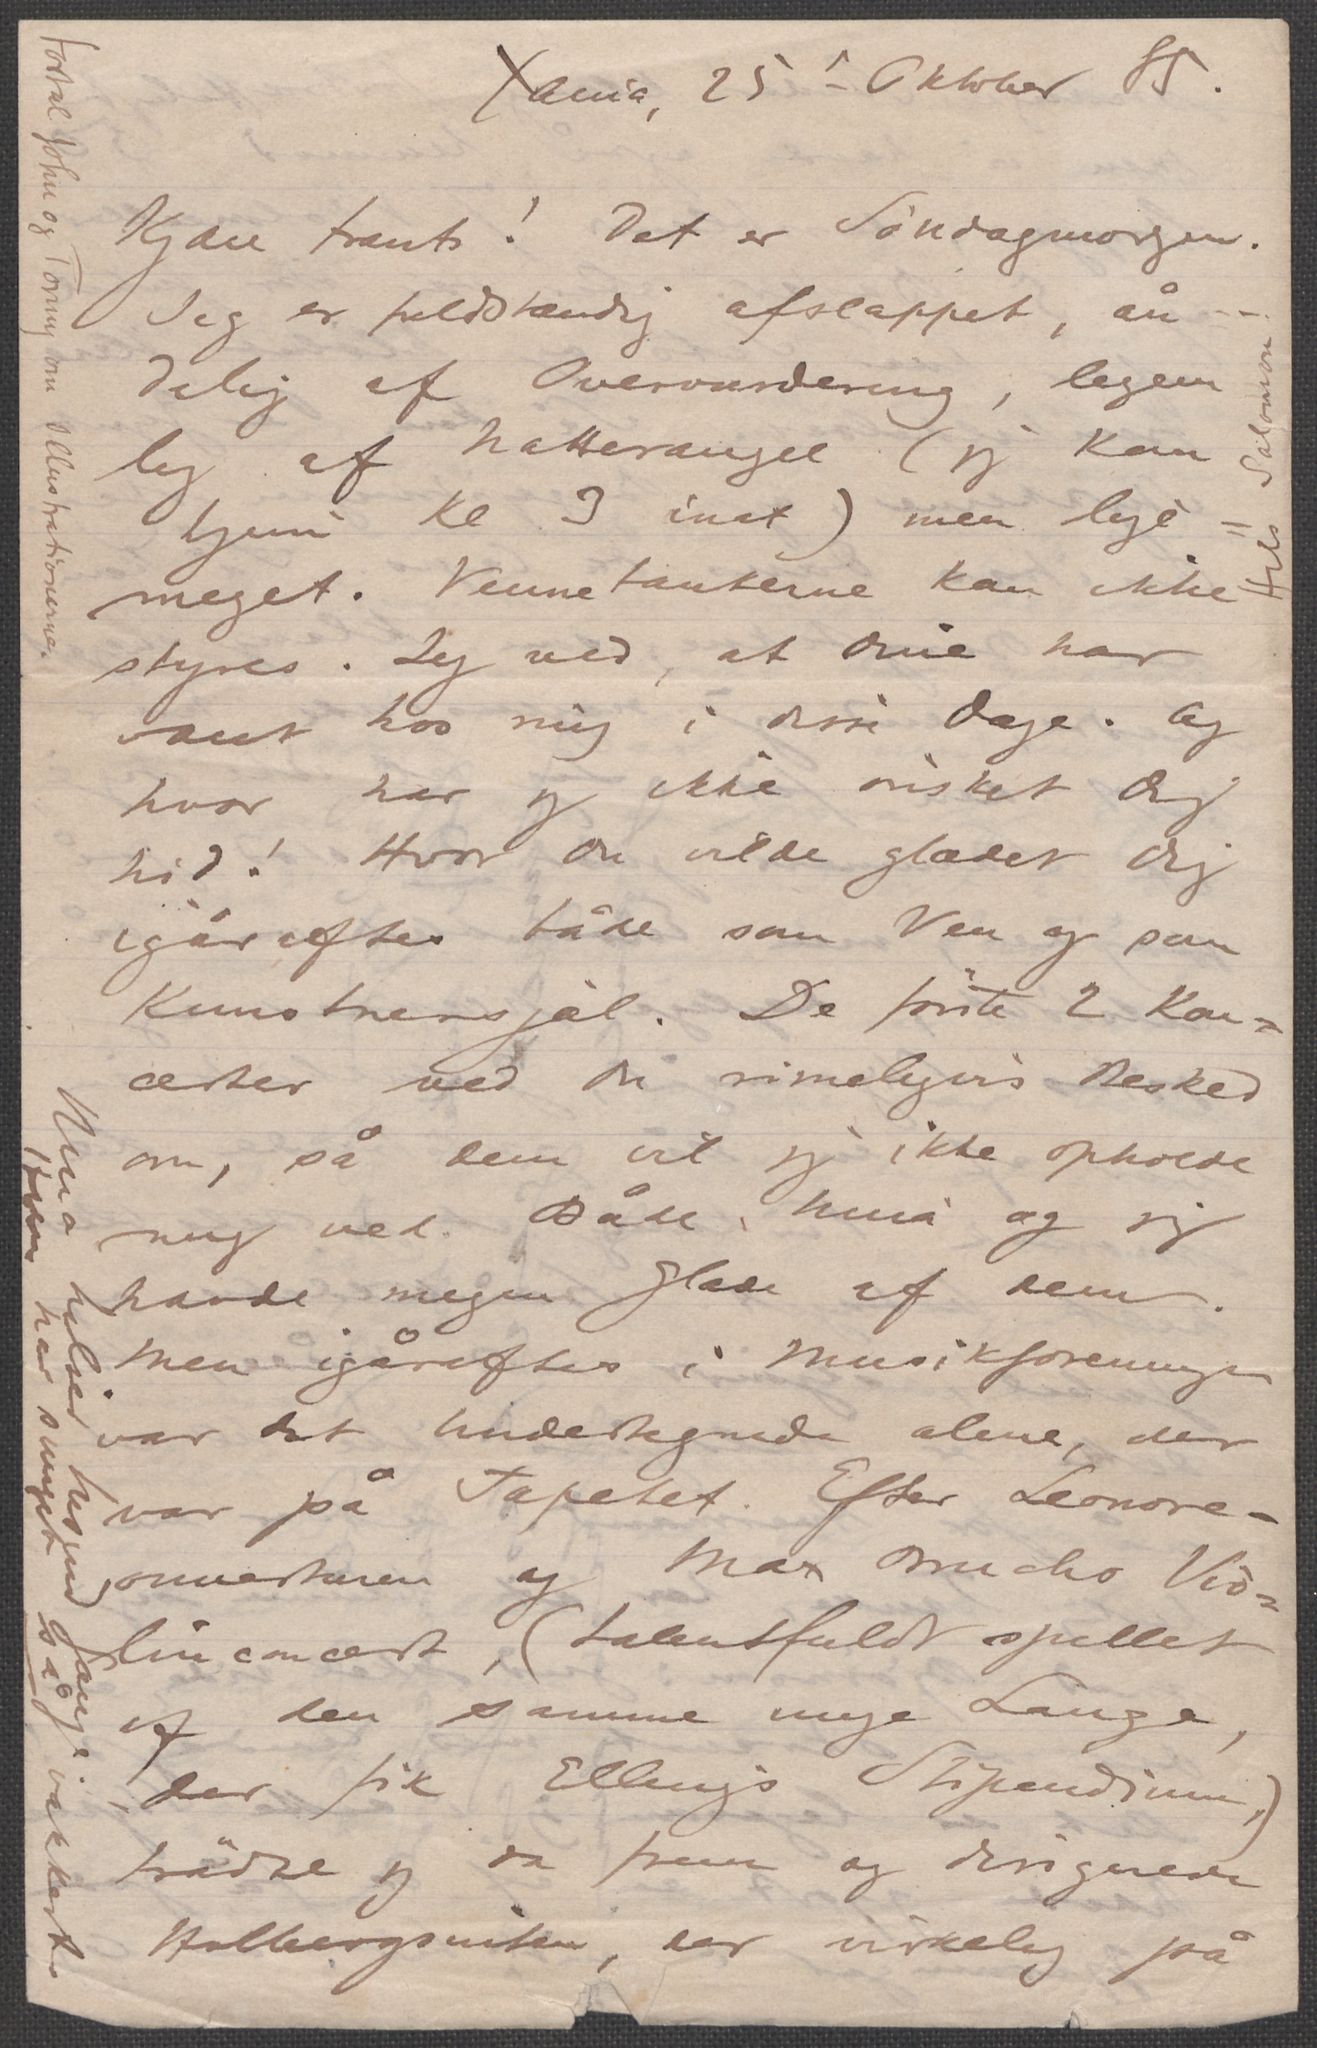 Xania, 25 Oktober 85.
Kjære Frants! Det er Söndagmorgen.
Jeg er fuldstændig afslappet, ån-
delig af Overvurdering, legem
lig af Natterangel (jeg kom
hjem Kl 3 inat) men lige
meget. Vennetankerne kan ikke
styres. Jeg ved, at dine har
været hos mig i disse Dage. Og
hvor har jeg ikke önsket dig
hid! Hvor du vilde glædet dig
igåraftes både som Ven og som
Kunstnersjæl. De förste 2 Kon-
certer ved du rimeligvis Besked
om, så dem vil jeg ikke opholde
mig ved. Både Nina og jeg
havde megen Glæde af dem.
Men igåraftes i Musikforeningen
var det Undertegnede alene, der
var på Tapetet. Efter Leonore-
ouverturen og Max Bruchs Vio-
linconcert, (talentfuldt spillet
af den samme unge Lange,
der fik Ellings Stipendium,)
trådte jeg da frem og dirigerede
Holbergsuiten, der virkelig på
Fortæl John og Tonny om Illustrationerne.
Hils Salomon
Nina hilser tusend Gange
Hun har sunget så vakkert.